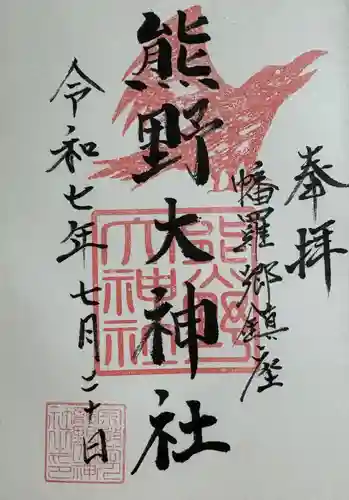 奉拝
幡羅郷鎮座
熊野大神社
令和七年七月二十日
熊野大神社